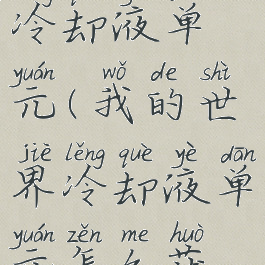 冷却液单
yuán wǒ de shì
元(我的世
jiè lěng què yè dān
界冷却液单
yuán zěn me huò